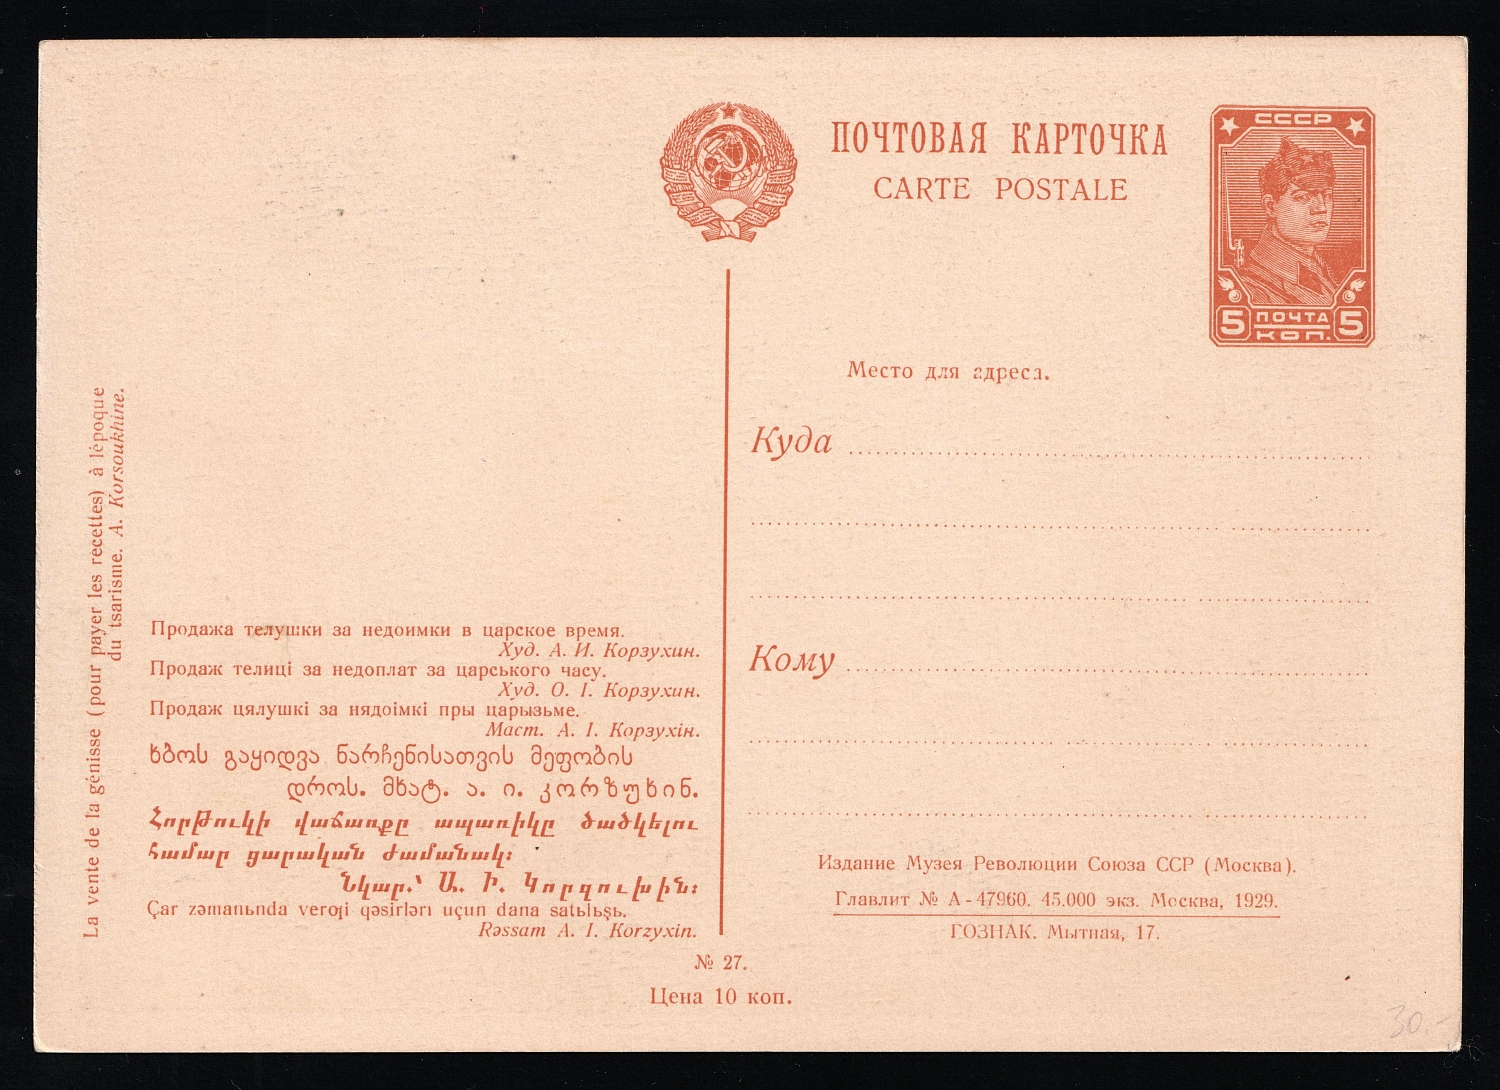 ПОЧТОВАЯ КАРТОЧКА
CARTE POSTALE
СССР
5 ПОЧТА 5
КОП.
Место для адреса.
Куда
Кому
La vente de la génisse (pour payer les recettes) à lépoque
du tsarisme. A. Korsoukhine.
Продажа телушки за недоимки в царское время.
Худ. А. И. Корзухин.
Продаж телиці за недоплат за царського часу.
Худ. О. І. Корзухин.
Продаж цялушкі за нядоімкі пры царызьме.
Маст. А. І. Корзухін.
ხბოს გაყიდვა ნარჩენისათვის მეფობის
დროს. მხატ. ა. ი. კორზუხინ.
Հորթուկի վաճառքը ապառիկը ծածկելու
համար ցարական ժամանակ։
Նկար.՝ Ա. Ի. Կորզուխին։
Çar zəmanьnda veroƣi qəsirləri uçun dana satьlьşь.
Rəssam A. I. Korzyxin.
Издание Музея Революции Союза ССР (Москва).
Главлит № А-47960. 45.000 экз. Москва, 1929.
ГОЗНАК. Мытная, 17.
№ 27.
Цена 10 коп.
30.-